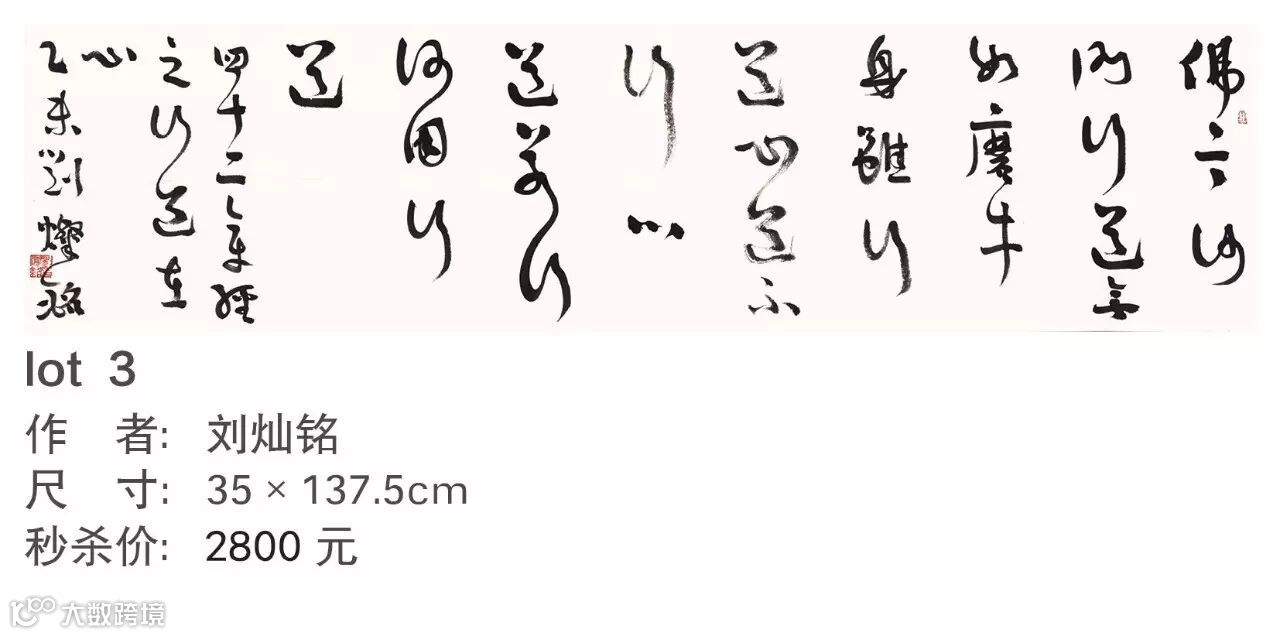 佛言沙
門行道無
如磨牛
身雖行
道心道不
行心
道若行
何用行
道
四十二章經
之行道在
心
乙未劉燦銘
lot 3
作 者: 刘灿铭
尺 寸: 35 × 137.5cm
秒杀价: 2800 元
大数跨境